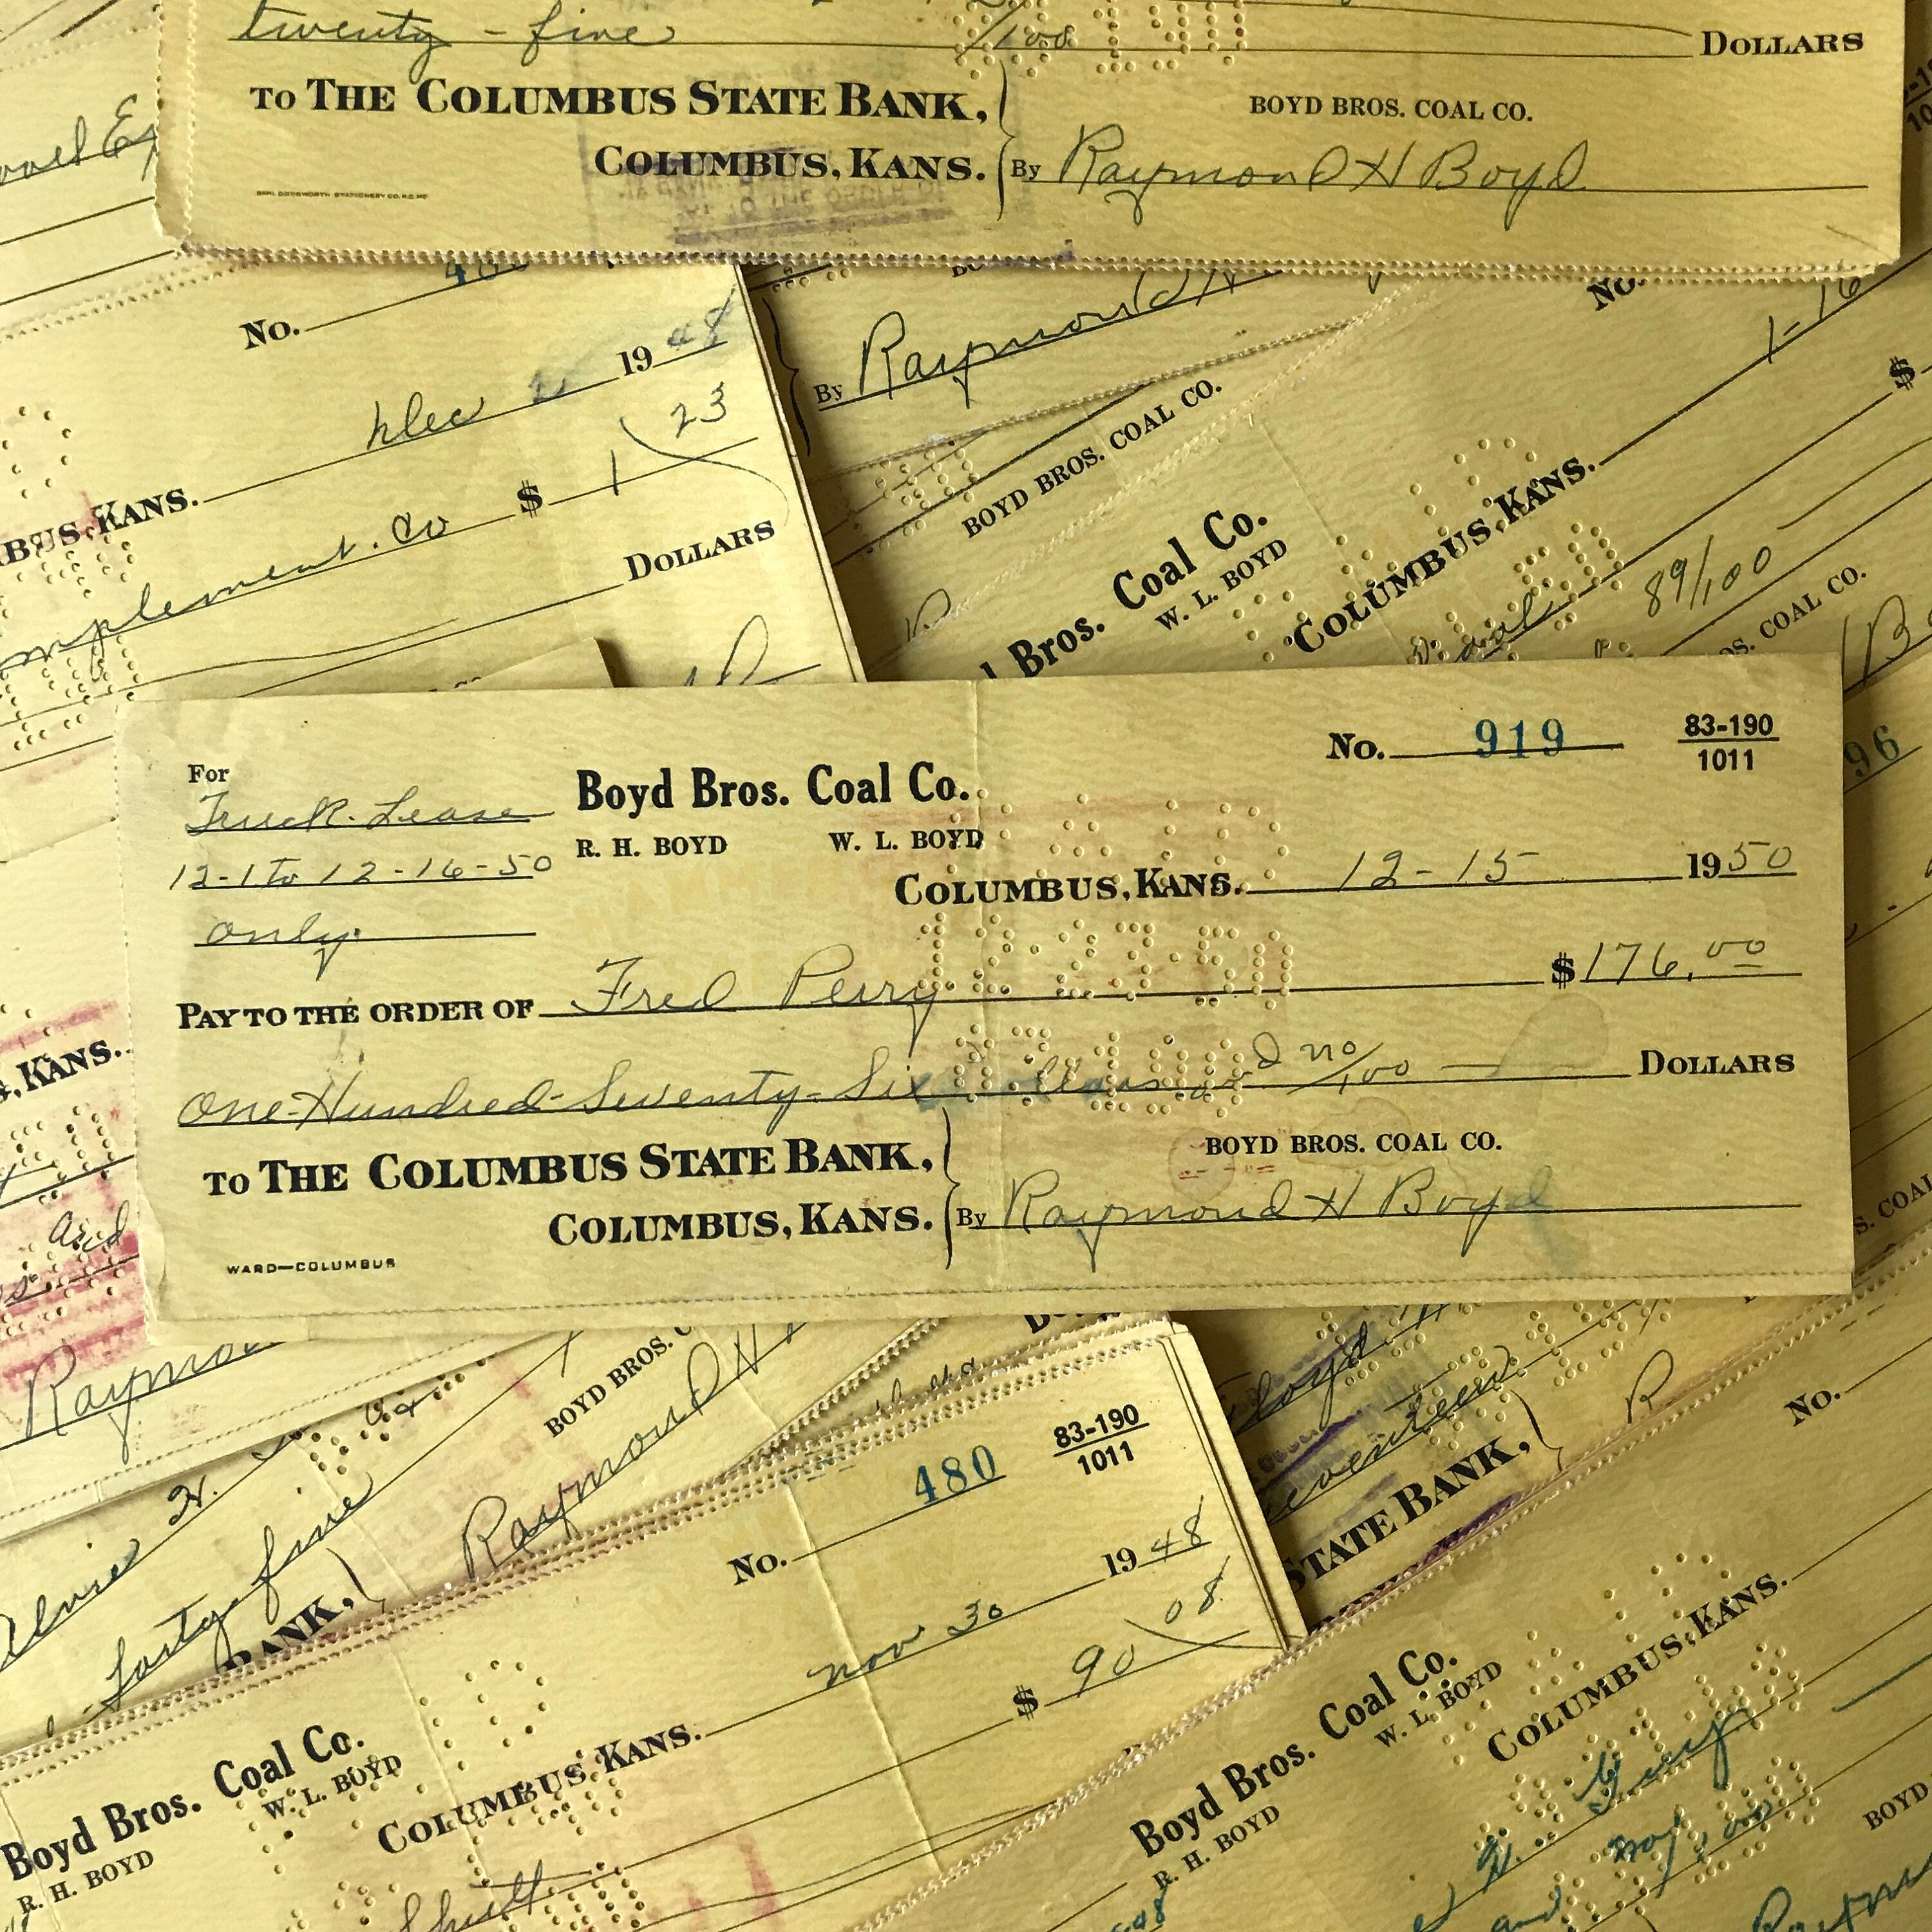 twenty - five /100 DOLLARS
TO THE COLUMBUS STATE BANK,
BOYD BROS. COAL CO.
COLUMBUS, KANS. By Raymond H Boyd
No.
Dec 19 48
KANS.
$ 1 23
mplement. Co
DOLLARS
By Raymond H
BOYD BROS. COAL CO.
No.
1-16
$
Bros. Coal Co.
W. L. BOYD
COLUMBUS, KANS.
89/100
OS. COAL CO.
96
For
Truck Lease
12-1 To 12-16-50
only
Boyd Bros. Coal Co.
R. H. BOYD W. L. BOYD
No. 919
83-190
1011
COLUMBUS, KANS. 12-15 1950
12-27-50
PAY TO THE ORDER OF Fred Perry $176.00
One-Hundred-Seventy-Six Dollars and no/100 DOLLARS
TO THE COLUMBUS STATE BANK,
BOYD BROS. COAL CO.
COLUMBUS, KANS. By Raymond H Boyd
WARD—COLUMBUS
KANS.
and
Raymon
forty-five
BANK,
BOYD BROS.
Raymond H
Floyd
seventeen
STATE BANK,
R
No.
No. 480
83-190
1011
Nov 30 19 48
$ 90 08
Boyd Bros. Coal Co.
R. H. BOYD W. L. BOYD
COLUMBUS, KANS.
Boyd Bros. Coal Co.
R. H. BOYD W. L. BOYD
COLUMBUS, KANS.
and no/100
BOYD